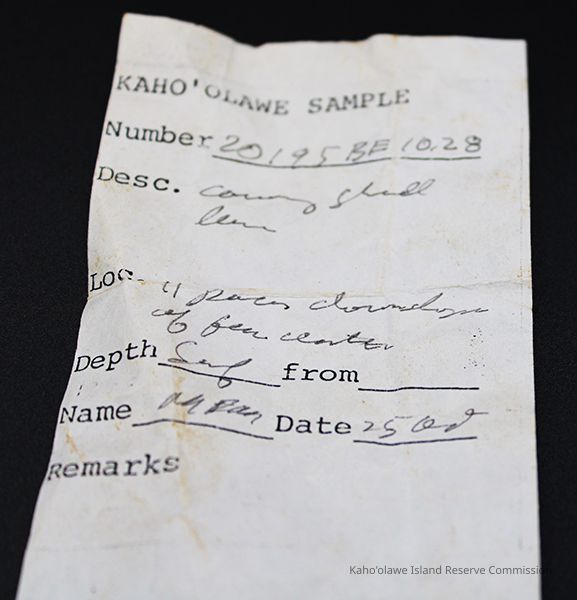 KAHO'OLAWE SAMPLE
Number 20195 BE 10.28
Desc. cowry shell
Loc. 11 paces downslope
of fea. center
Depth Surf from
Name Date 25 Oct
Remarks
Kaho'olawe Island Reserve Commission